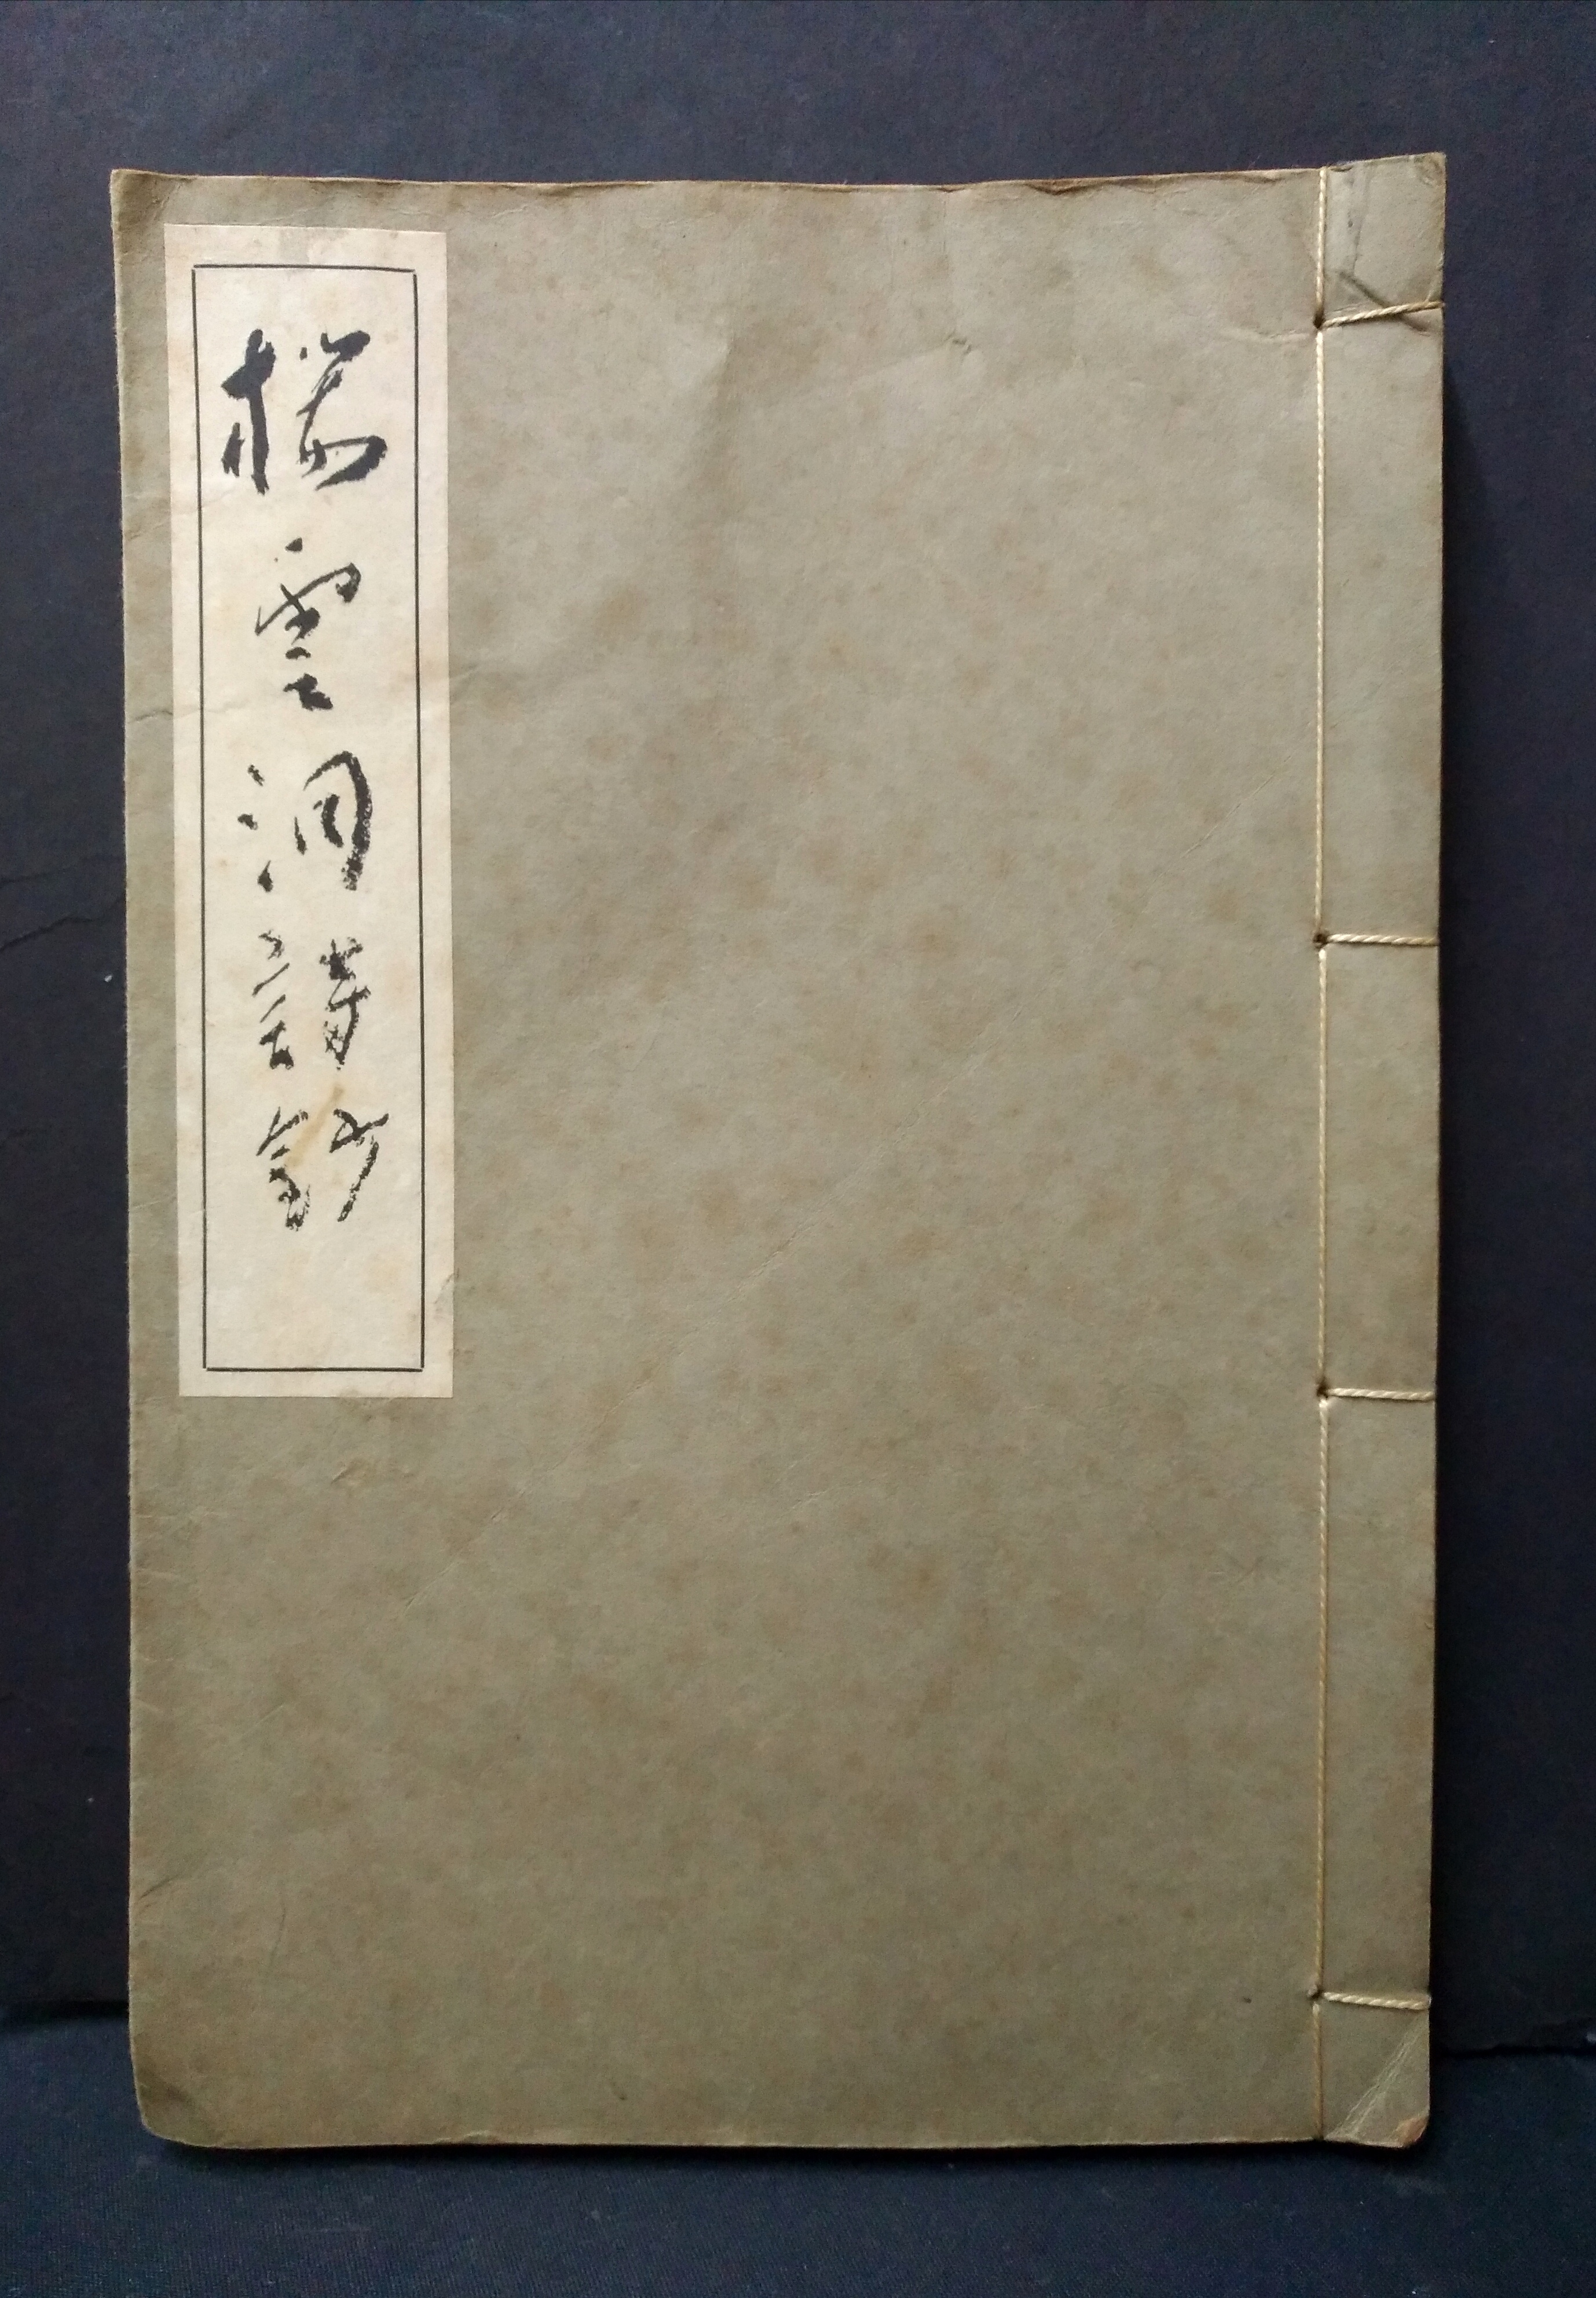 雲洞詩鈔